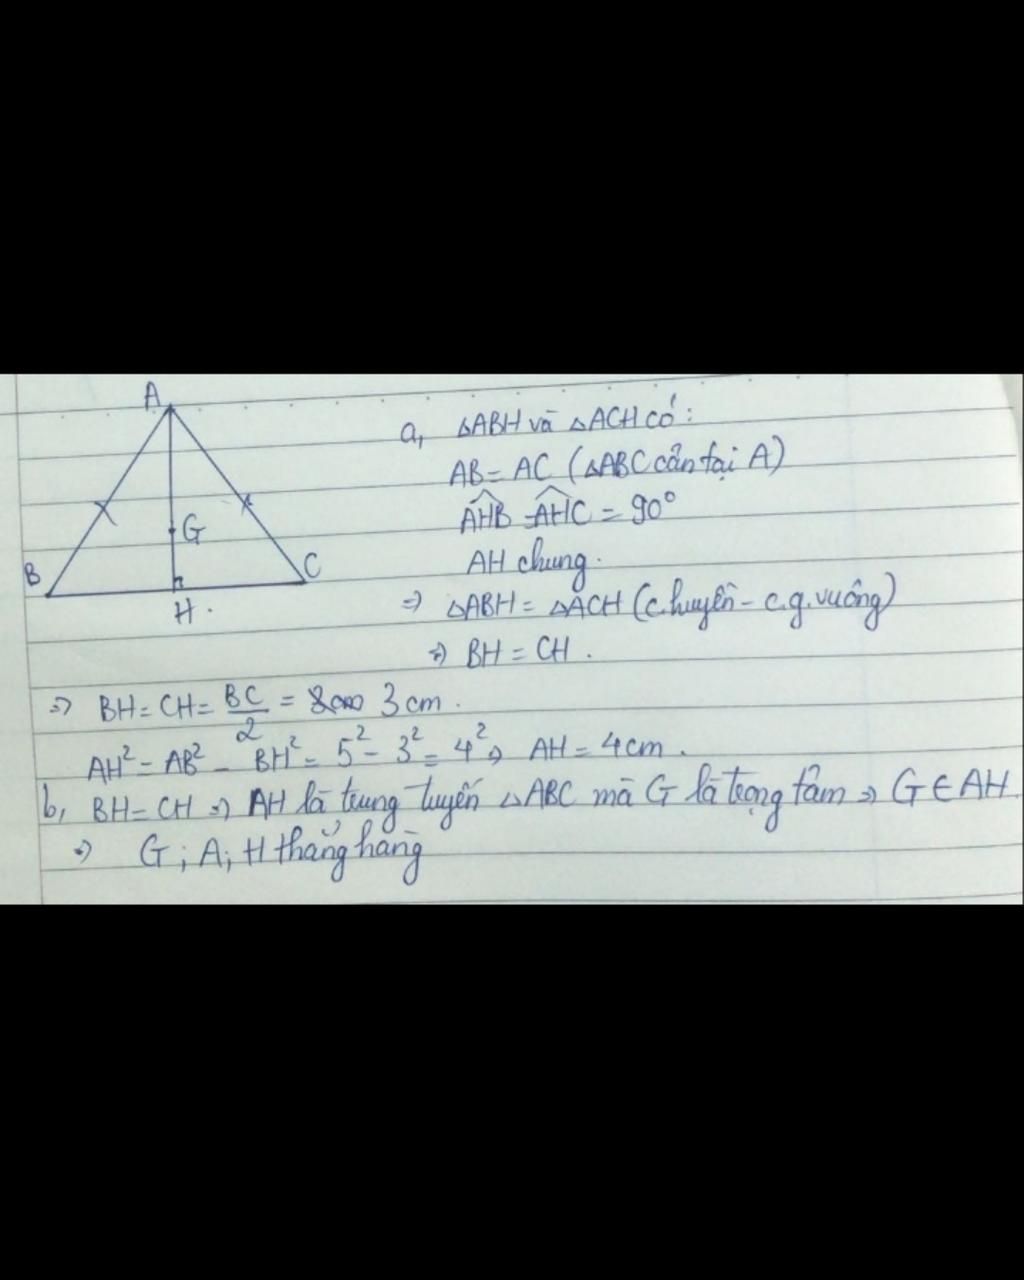 A
G
B
C
H .
a, △ABH và △ACH có :
AB = AC (△ABC cân tại A)
AHB = AHC = 90°
AH chung.
=> △ABH = △ACH (c.huyền - c.g.vuông)
=> BH = CH .
=> BH = CH = BC/2 = 3 cm .
AH² = AB² - BH² = 5² - 3² = 4² => AH = 4 cm .
b, BH = CH => AH là trung tuyến △ABC mà G là trọng tâm => G ∈ AH.
=> G ; A ; H thẳng hàng